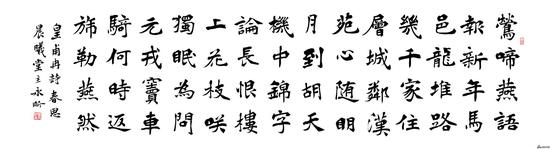 鶯啼燕語
報新年馬
邑龍堆路
幾千家住
層城鄰漢
苑心随明
月到胡天
機中錦字
論長恨樓
上花枝咲
獨眠為問
元戎竇車
騎何時返
旆勒燕然
皇甫冉詩春思
晨曦堂主永